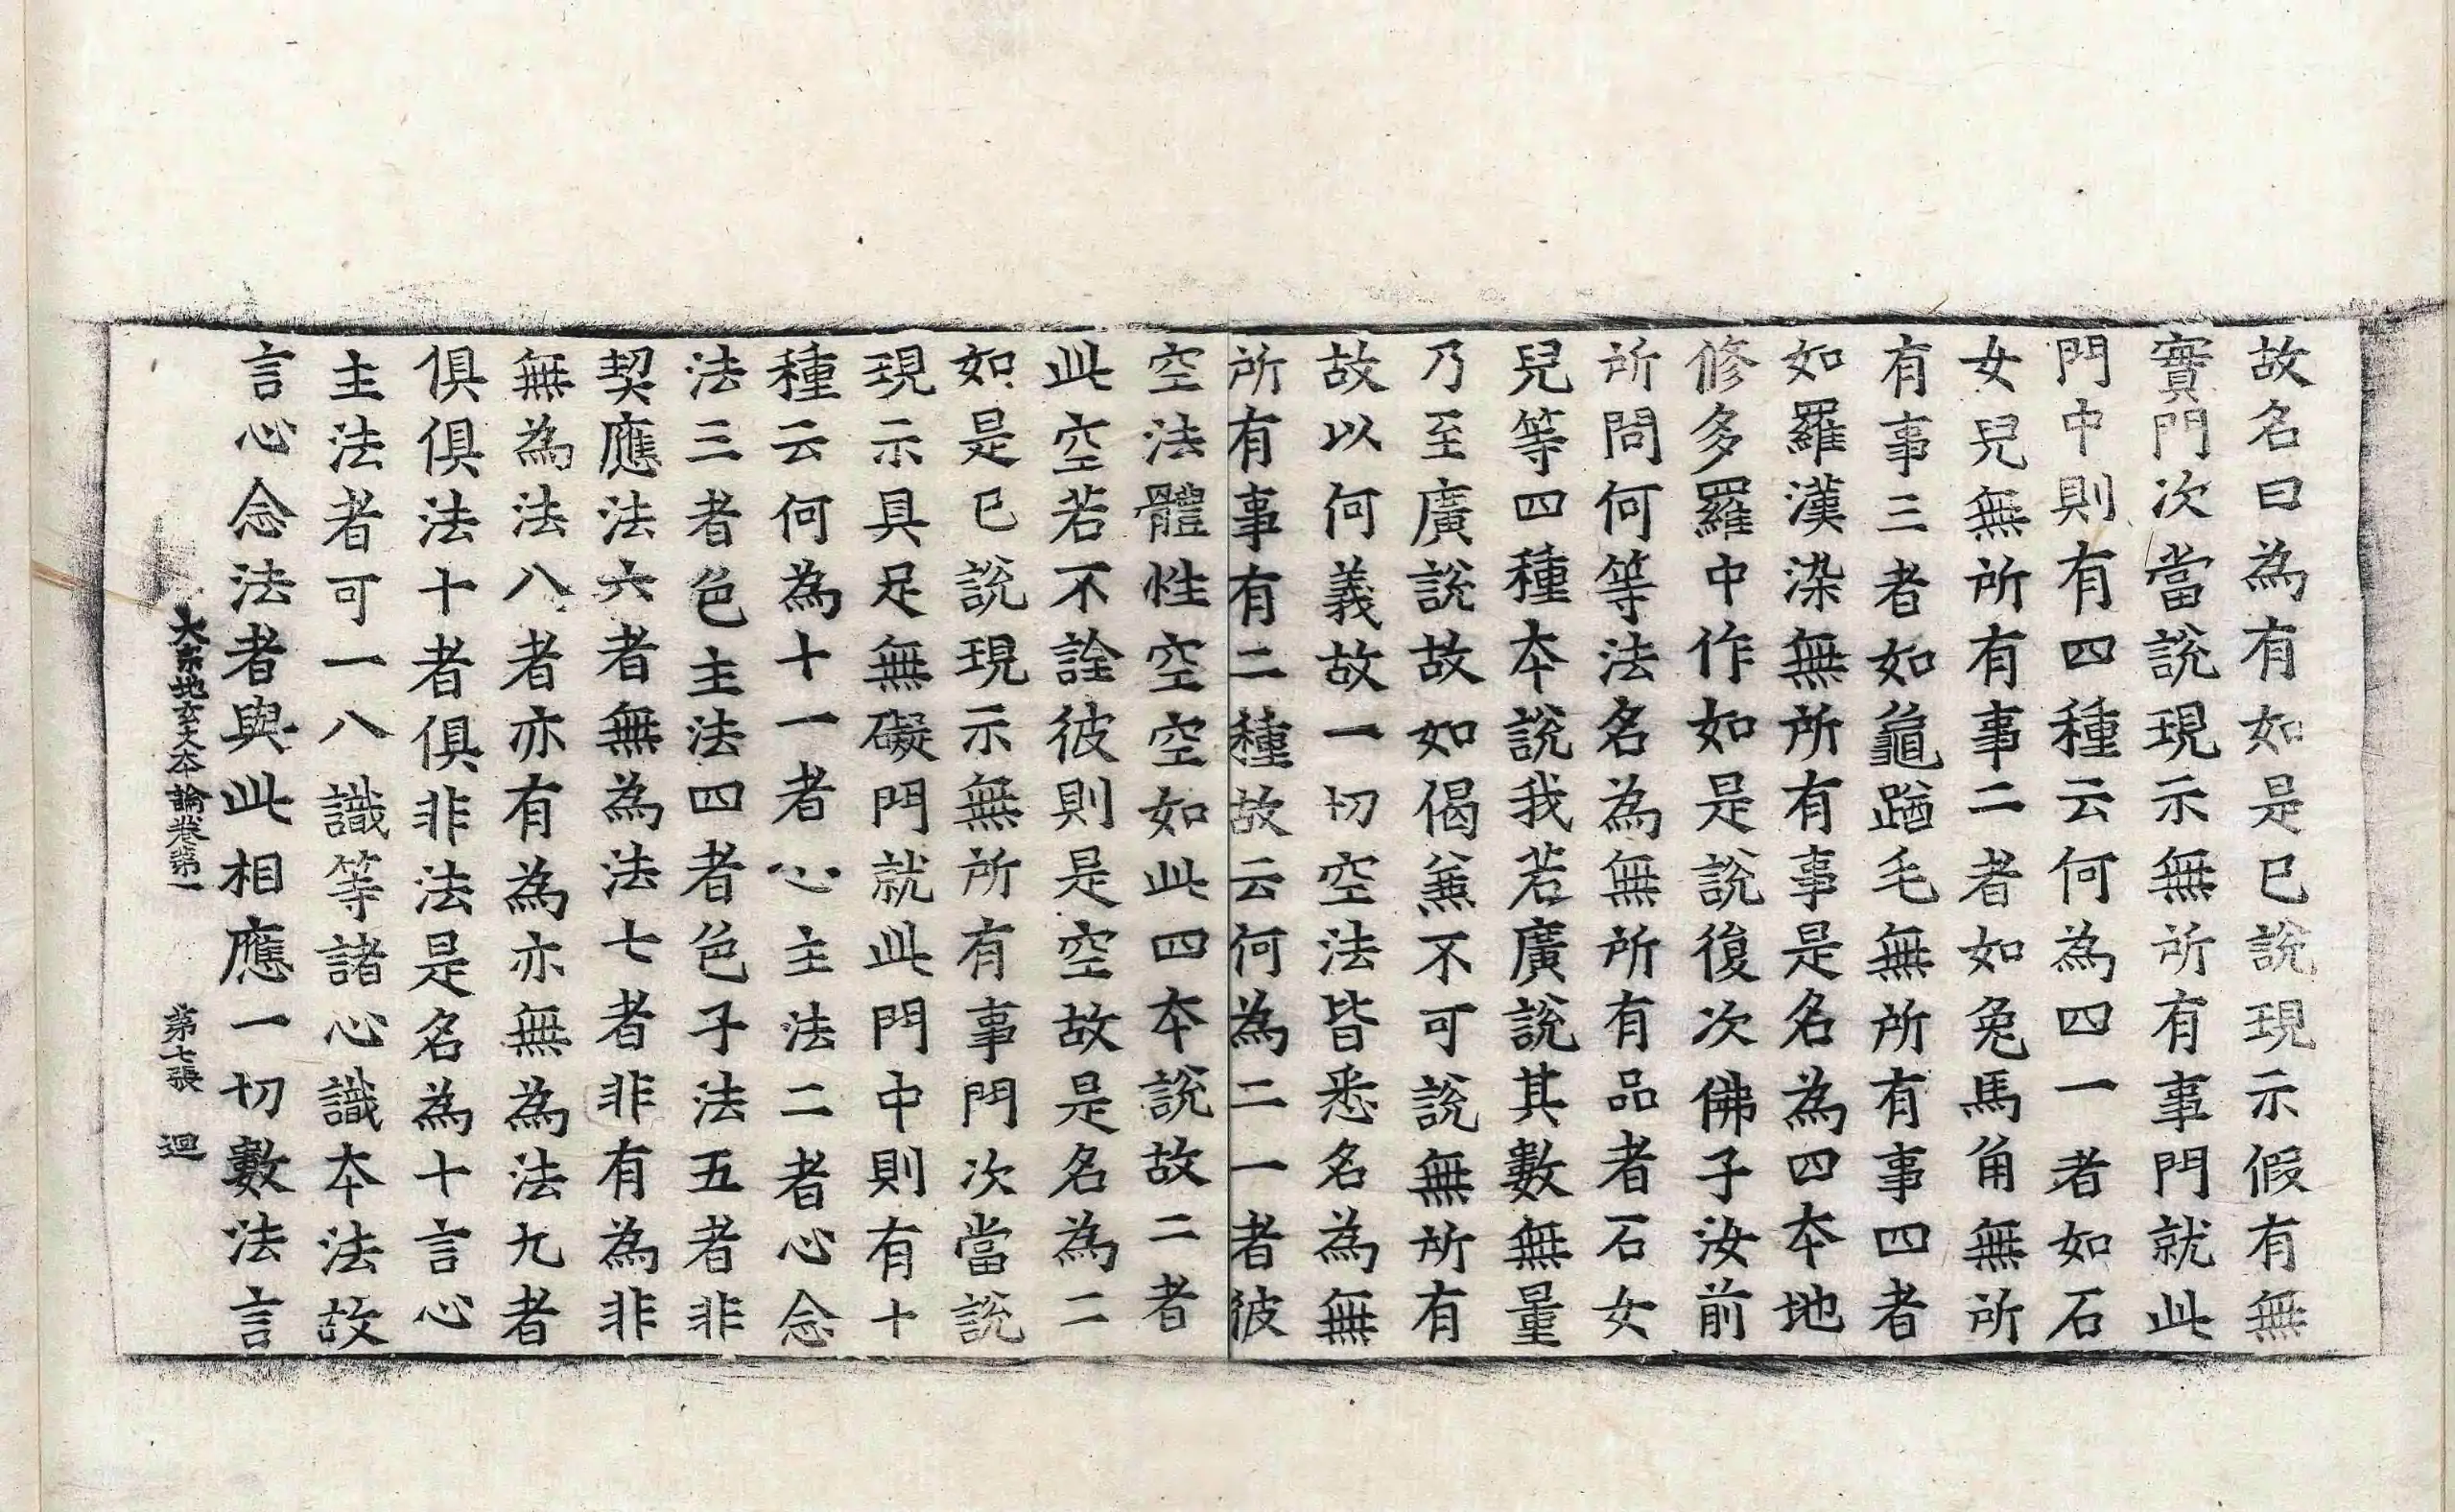 故名曰為有如是已說現示假有無
實門次當說現示無所有事門就此
門中則有四種云何為四一者如石
女兒無所有事二者如兔馬角無所
有事三者如龜蹈毛無所有事四者
如羅漢染無所有事是名為四本地
修多羅中作如是說復次佛子汝前
所問何等法名為無所有品者石女
兒等四種本說我若廣說其數無量
乃至廣說故如偈無不可說無所有
故以何義故一切空法皆悉名為無
所有事有二種故云何為二一者彼
空法體性空空如此四本說故二者
此空若不詮彼則是空故是名為二
如是已說現示無所有事門次當說
現示具足無礙門就此門中則有十
種云何為十一者心主法二者心念
法三者色主法四者色子法五者非
契應法六者無為法七者非有為非
無為法八者亦有為亦無為法九者
俱俱法十者俱非法是名為十言心
主法者可一八識等諸心識本法故
言心念法者與此相應一切數法言
大宗地玄文本論卷第一 第七張 迴